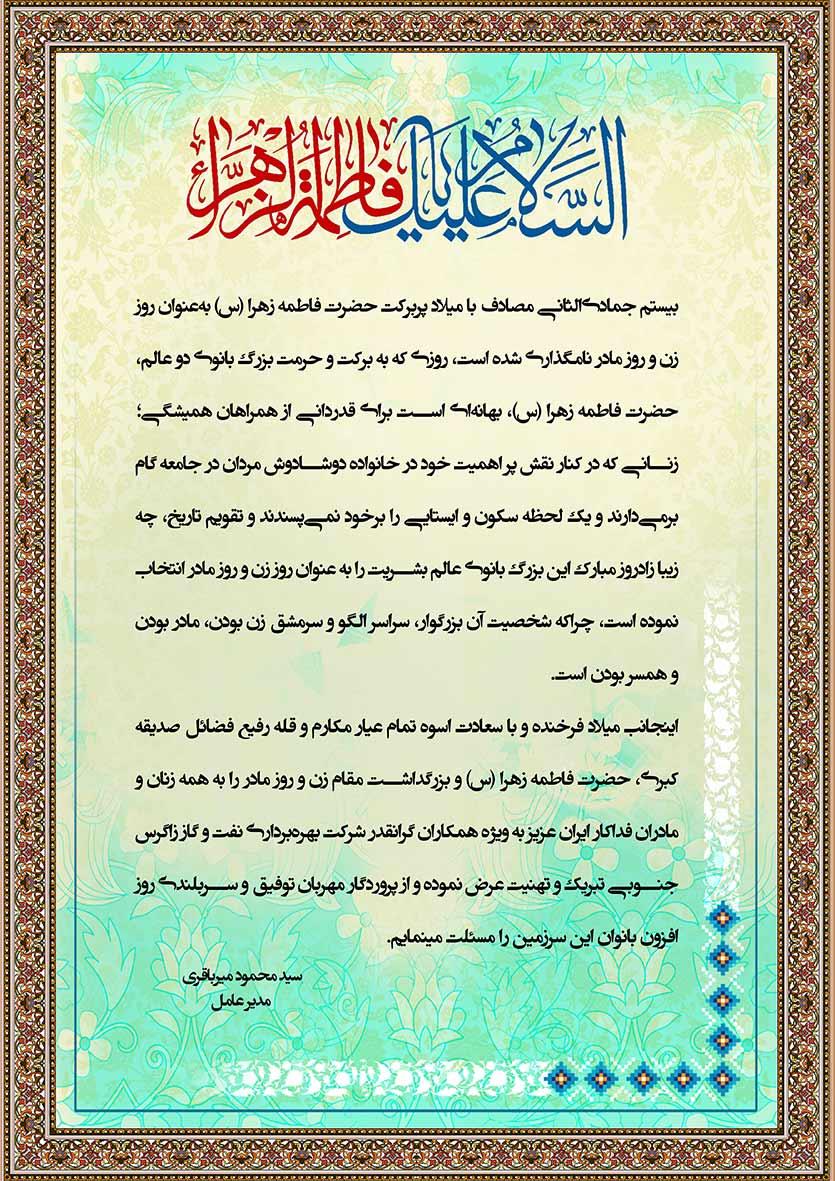 السلام علیک یا فاطمة الزهراء
بیستم جمادی‌الثانی مصادف با میلاد پربرکت حضرت فاطمه زهرا (س) به‌عنوان روز
زن و روز مادر نامگذاری شده است، روزی که به برکت و حرمت بزرگ بانوی دو عالم،
حضرت فاطمه زهرا (س)، بهانه‌ای است برای قدردانی از همراهان همیشگی؛
زنانی که در کنار نقش پر اهمیت خود در خانواده دوشادوش مردان در جامعه گام
برمی‌دارند و یک لحظه سکون و ایستایی را برخود نمی‌پسندند و تقویم تاریخ، چه
زیبا زادروز مبارک این بزرگ بانوی عالم بشریت را به عنوان روز زن و روز مادر انتخاب
نموده است، چراکه شخصیت آن بزرگوار، سراسر الگو و سرمشق زن بودن، مادر بودن
و همسر بودن است.
اینجانب میلاد فرخنده و با سعادت اسوه تمام عیار مکارم و قله رفیع فضائل صدیقه
کبری، حضرت فاطمه زهرا (س) و بزرگداشت مقام زن و روز مادر را به همه زنان و
مادران فداکار ایران عزیز به ویژه همکاران گرانقدر شرکت بهره‌برداری نفت و گاز زاگرس
جنوبی تبریک و تهنیت عرض نموده و از پروردگار مهربان توفیق و سربلندی روز
افزون بانوان این سرزمین را مسئلت مینمایم.
سید محمود میرباقری
مدیر عامل